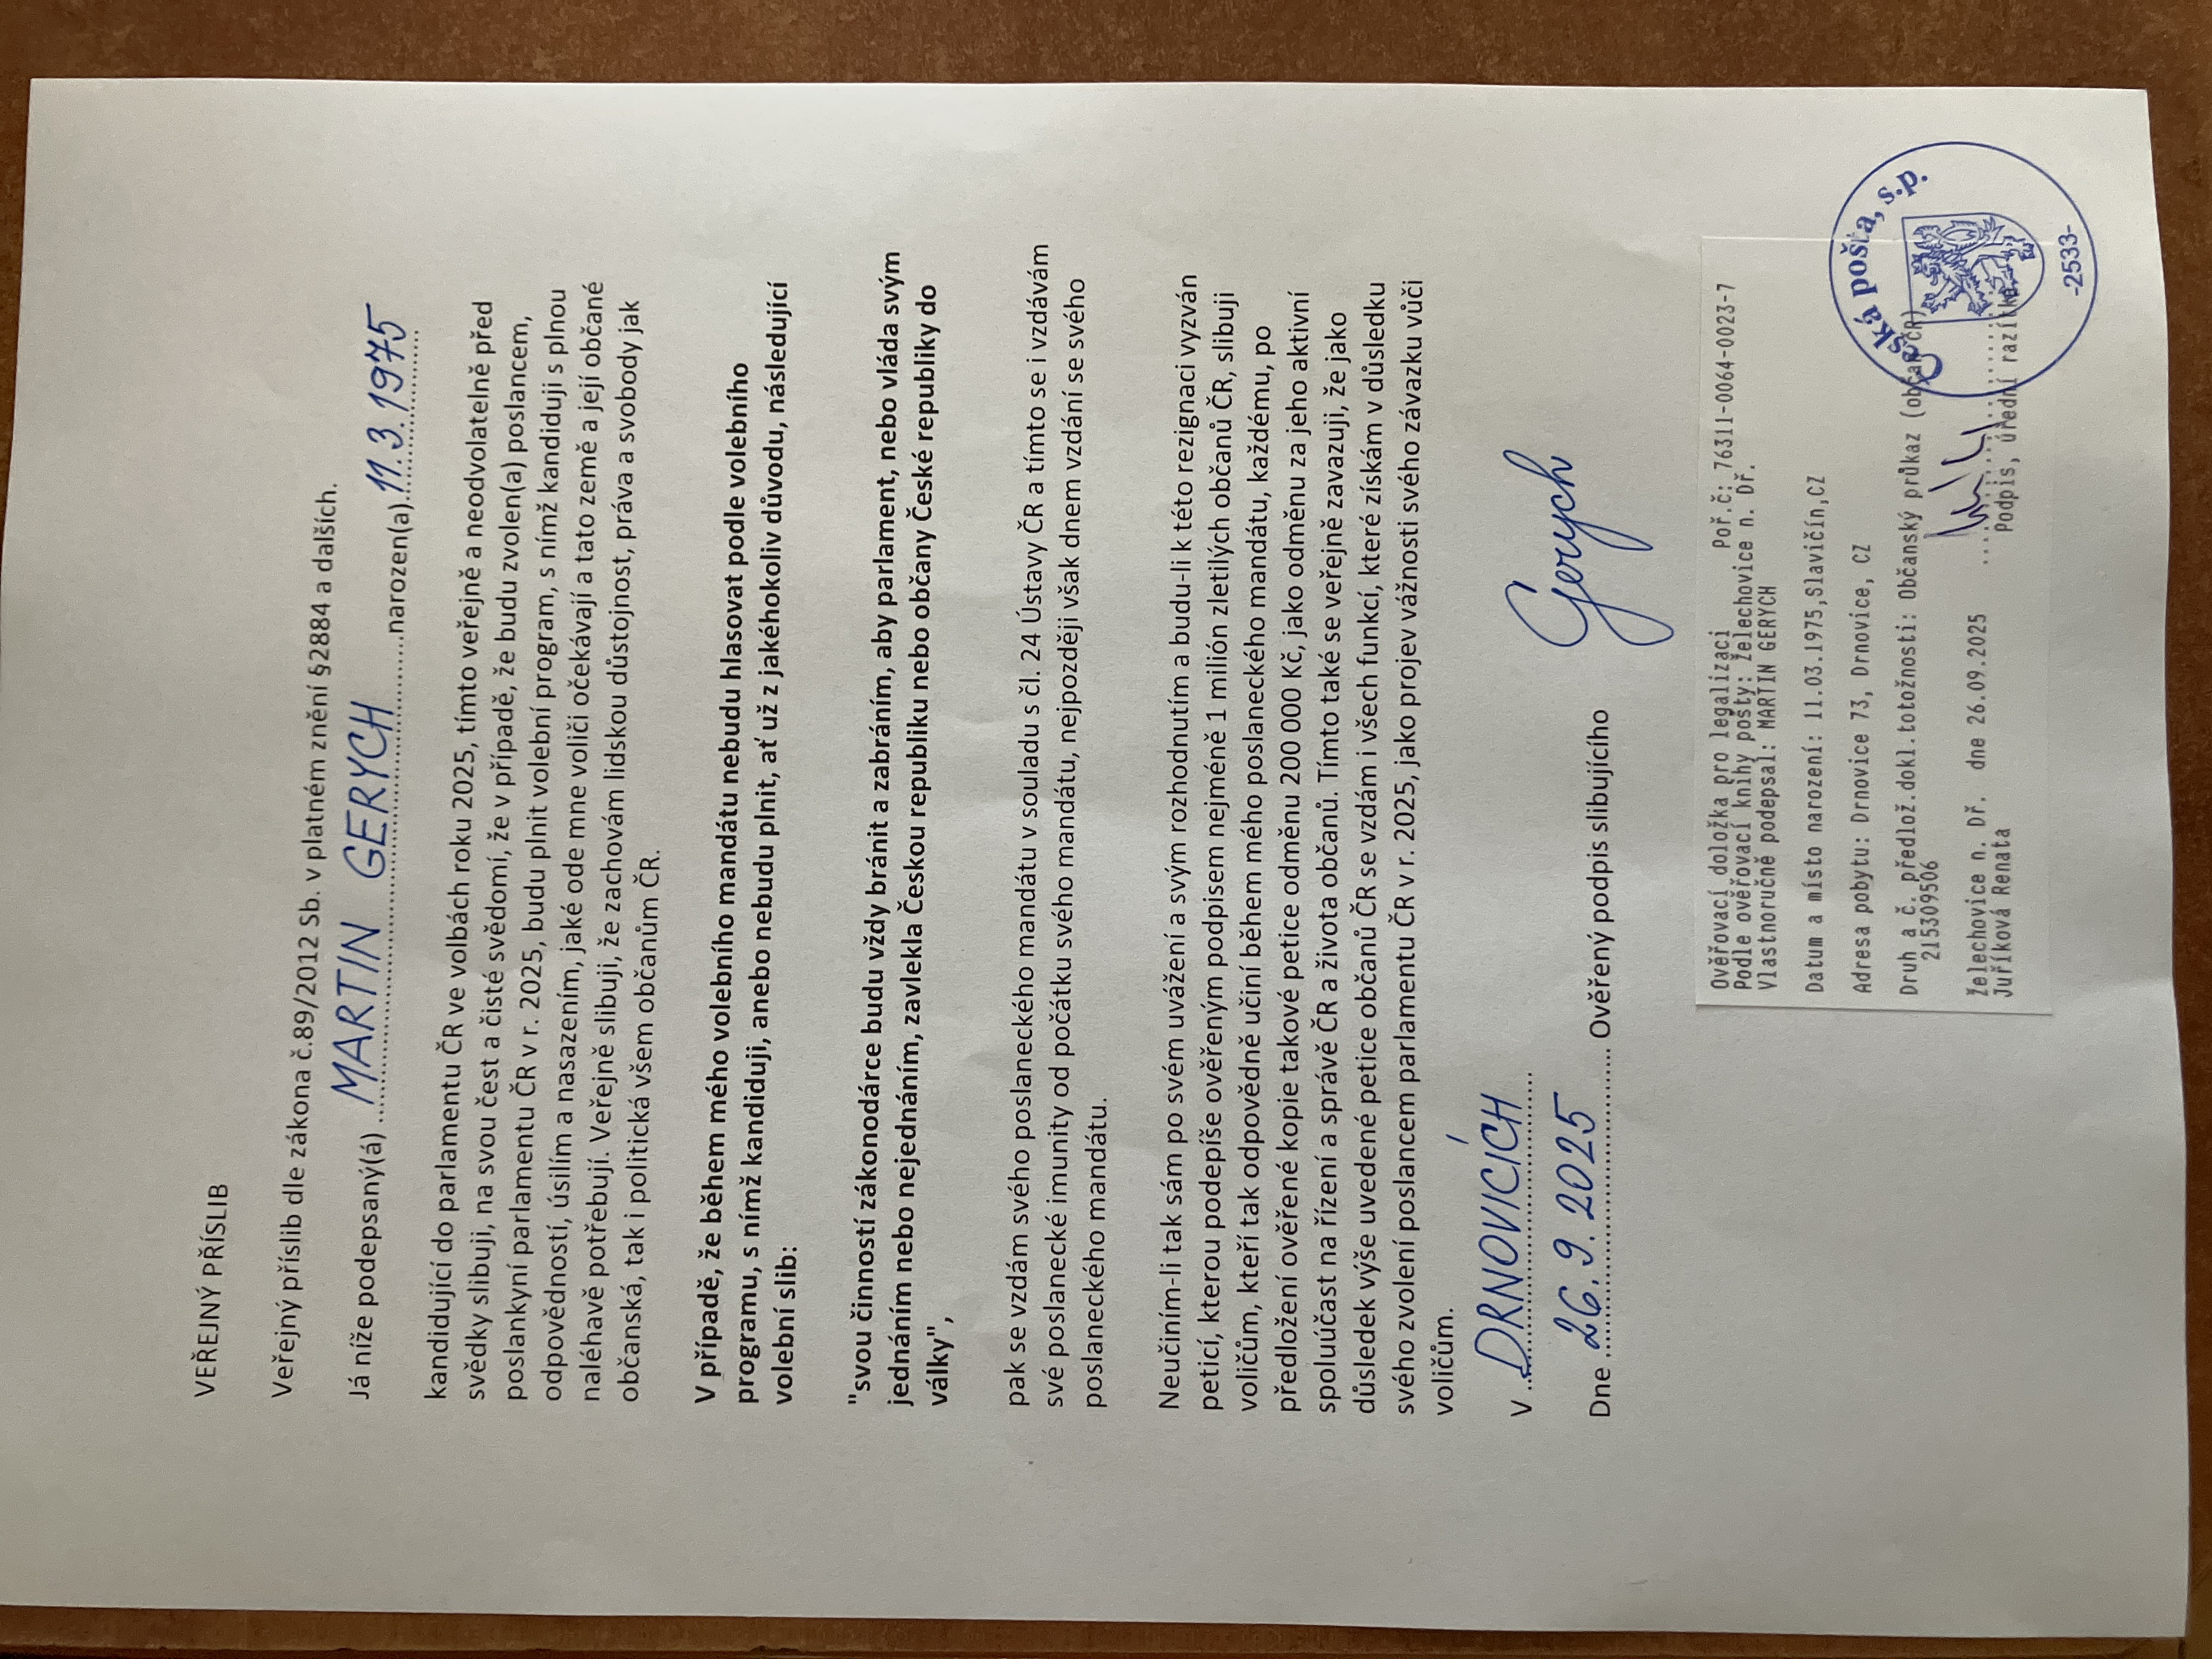 VEŘEJNÝ PŘÍSLIB
Veřejný příslib dle zákona č.89/2012 Sb. v platném znění §2884 a dalších.
Já níže podepsaný(á) ..MARTIN GERYCH..narozen(a).11.3.1975
kandidující do parlamentu ČR ve volbách roku 2025, tímto veřejně a neodvolatelně před
svědky slibuji, na svou čest a čisté svědomí, že v případě, že budu zvolen(a) poslancem,
poslankyní parlamentu ČR v r. 2025, budu plnit volební program, s nímž kandiduji s plnou
odpovědností, úsilím a nasazením, jaké ode mne voliči očekávají a tato země a její občané
naléhavě potřebují. Veřejně slibuji, že zachovám lidskou důstojnost, práva a svobody jak
občanská, tak i politická všem občanům ČR.
V případě, že během mého volebního mandátu nebudu hlasovat podle volebního
programu, s nímž kandiduji, anebo nebudu plnit, ať už z jakéhokoliv důvodu, následující
volební slib:
"svou činností zákonodárce budu vždy bránit a zabráním, aby parlament, nebo vláda svým
jednáním nebo nejednáním, zavlekla Českou republiku nebo občany České republiky do
války",
pak se vzdám svého poslaneckého mandátu v souladu s čl. 24 Ústavy ČR a tímto se i vzdávám
své poslanecké imunity od počátku svého mandátu, nejpozději však dnem vzdání se svého
poslaneckého mandátu.
Neučiním-li tak sám po svém uvážení a svým rozhodnutím a budu-li k této rezignaci vyzván
peticí, kterou podepíše ověřeným podpisem nejméně 1 milión zletilých občanů ČR, slibuji
voličům, kteří tak odpovědně učiní během mého poslaneckého mandátu, každému, po
předložení ověřené kopie takové petice odměnu 200 000 Kč, jako odměnu za jeho aktivní
spoluúčast na řízení a správě ČR a života občanů. Tímto také se veřejně zavazuji, že jako
důsledek výše uvedené petice občanů ČR se vzdám i všech funkcí, které získám v důsledku
svého zvolení poslancem parlamentu ČR v r. 2025, jako projev vážnosti svého závazku vůči
voličům.
V ..DRNOVICÍCH
Dne 26.9.2025 Ověřený podpis slibujícího Gerych
Ověřovací doložka pro legalizaci Poř.č: 76311-0064-0023-7
Podle ověřovací knihy pošty: Želechovice n. Dř.
Vlastnoručně podepsal: MARTIN GERYCH
Datum a místo narození: 11.03.1975,Slavičín,CZ
Adresa pobytu: Drnovice 73, Drnovice, CZ
Druh a č. předlož.dokl.totožnosti: Občanský průkaz (občan ČR)
215309506
Želechovice n. Dř. dne 26.09.2025
Juříková Renata Podpis, úřední razítko
Česká pošta, s.p.
-2533-